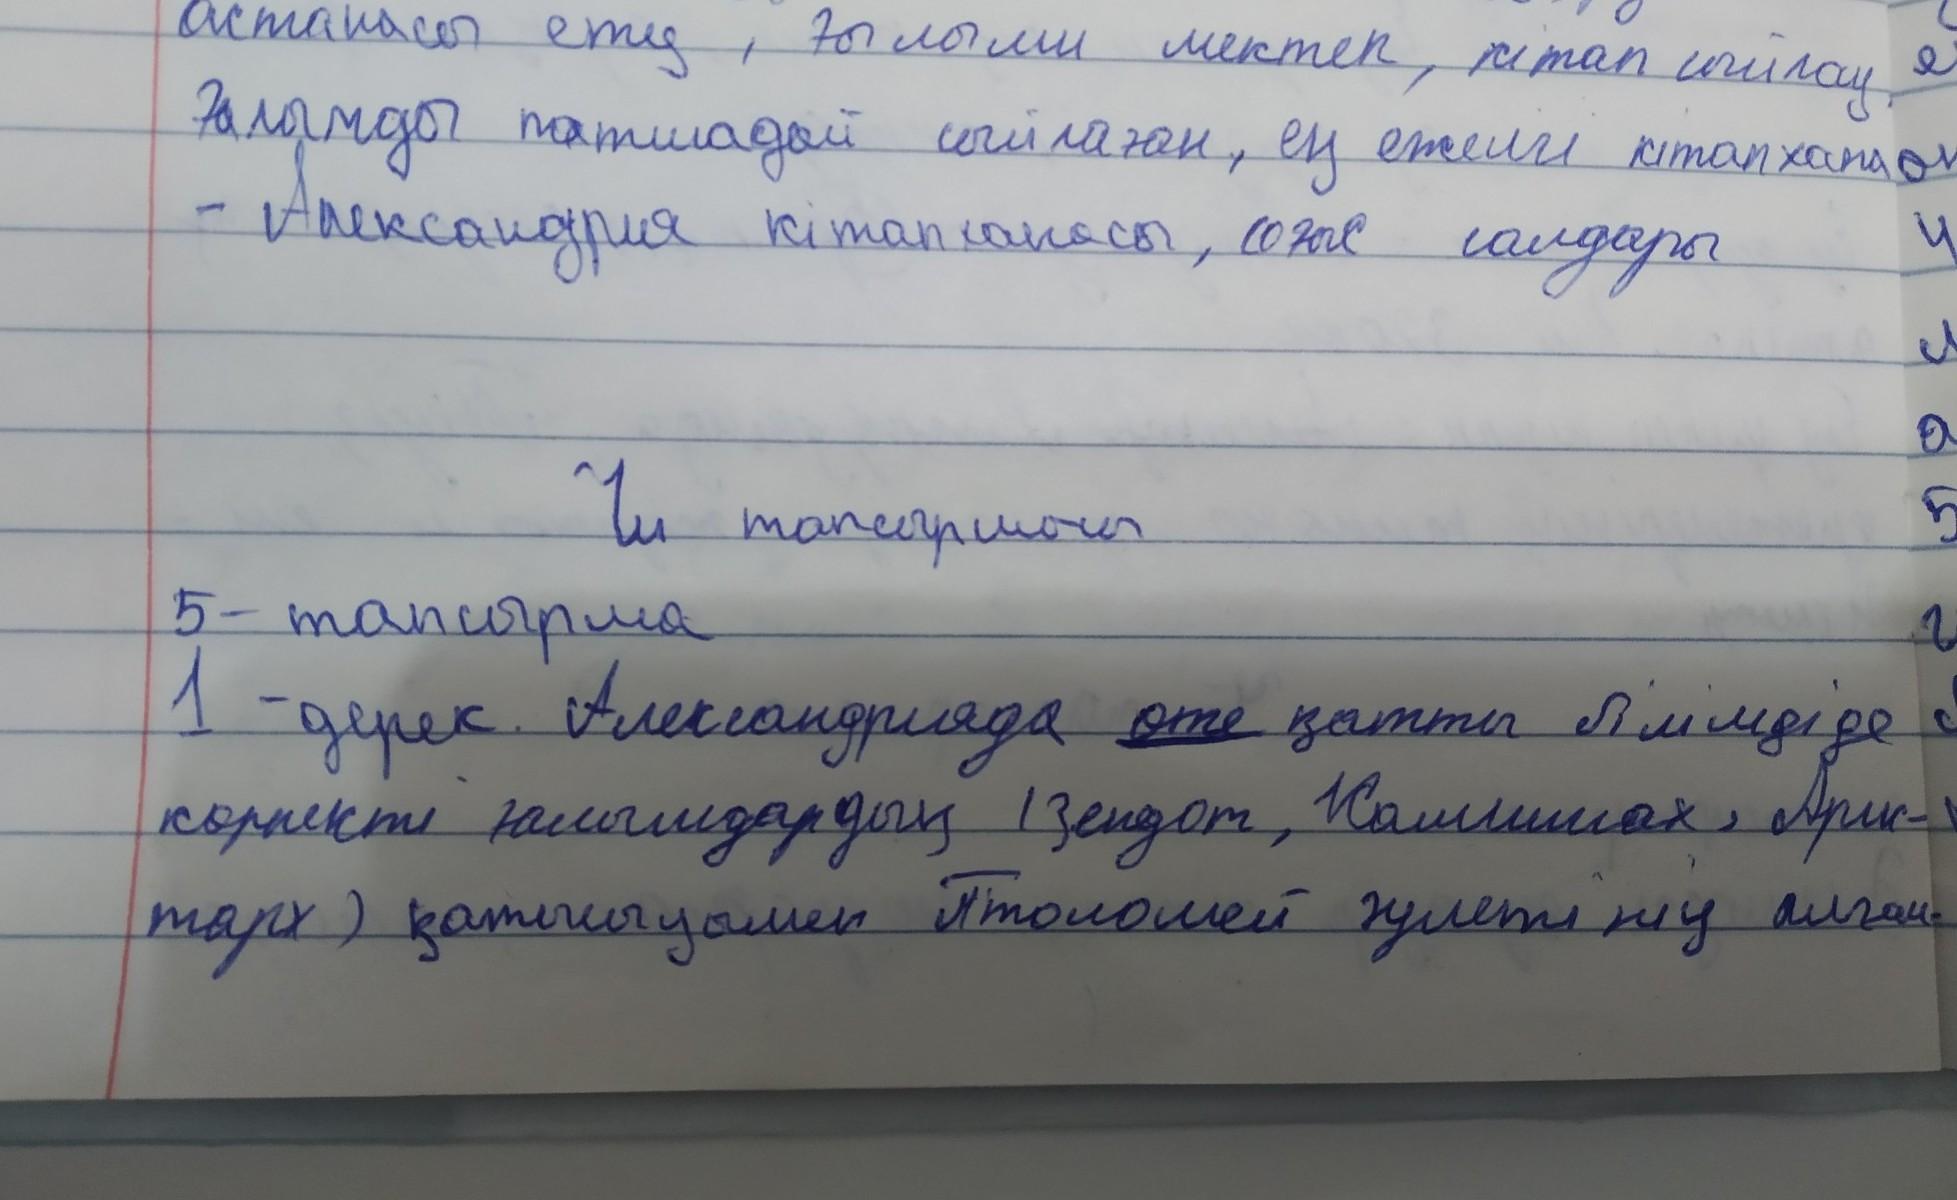 астанасы ету, ғылыми мектеп, кітап сыйлау,
Ғалымды патшадай сыйлаған, ең ежелгі кітапхана
- Александрия кітапханасы, соғыс салдары
Үй тапсырмасы
5- тапсырма
1 -дерек. Александрияда өте қатты білімдіде
корпекті ғалымдардың (Зендот, Каллимах, Арис-
тарх) қатысуымен Птоломей әулетінің алған-